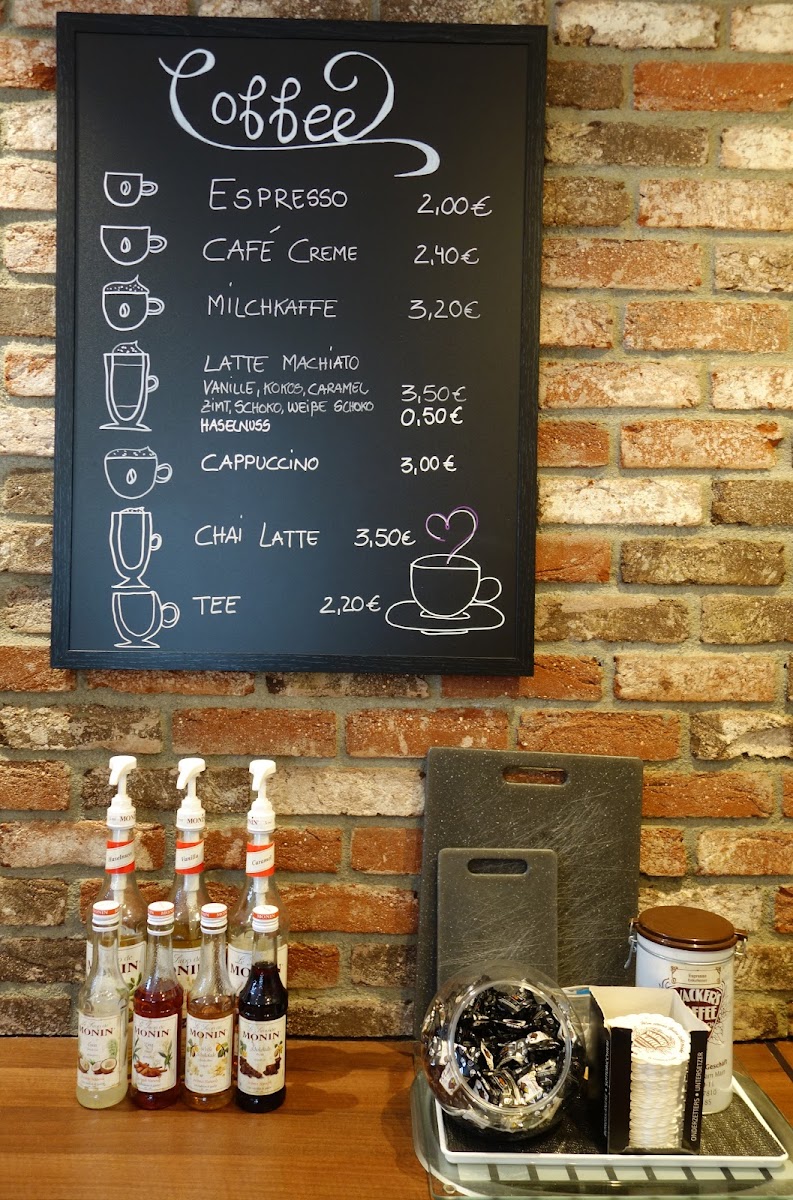 Coffee
ESPRESSO 2,00€
CAFÉ CREME 2,40€
MILCHKAFFE 3,20€
LATTE MACHIATO
VANILLE, KOKOS, CARAMEL 3,50€
ZIMT, SCHOKO, WEIßE SCHOKO 0,50€
HASELNUSS
CAPPUCCINO 3,00€
CHAI LATTE 3,50€
TEE 2,20€
MONIN MONIN MONIN
Haselnuss Vanille Caramel
MONIN MONIN MONIN
MONIN MONIN MONIN MONIN
WACKER'S
KAFFEE
Geschäft
ONDERZETTERS • UNTERSETZER